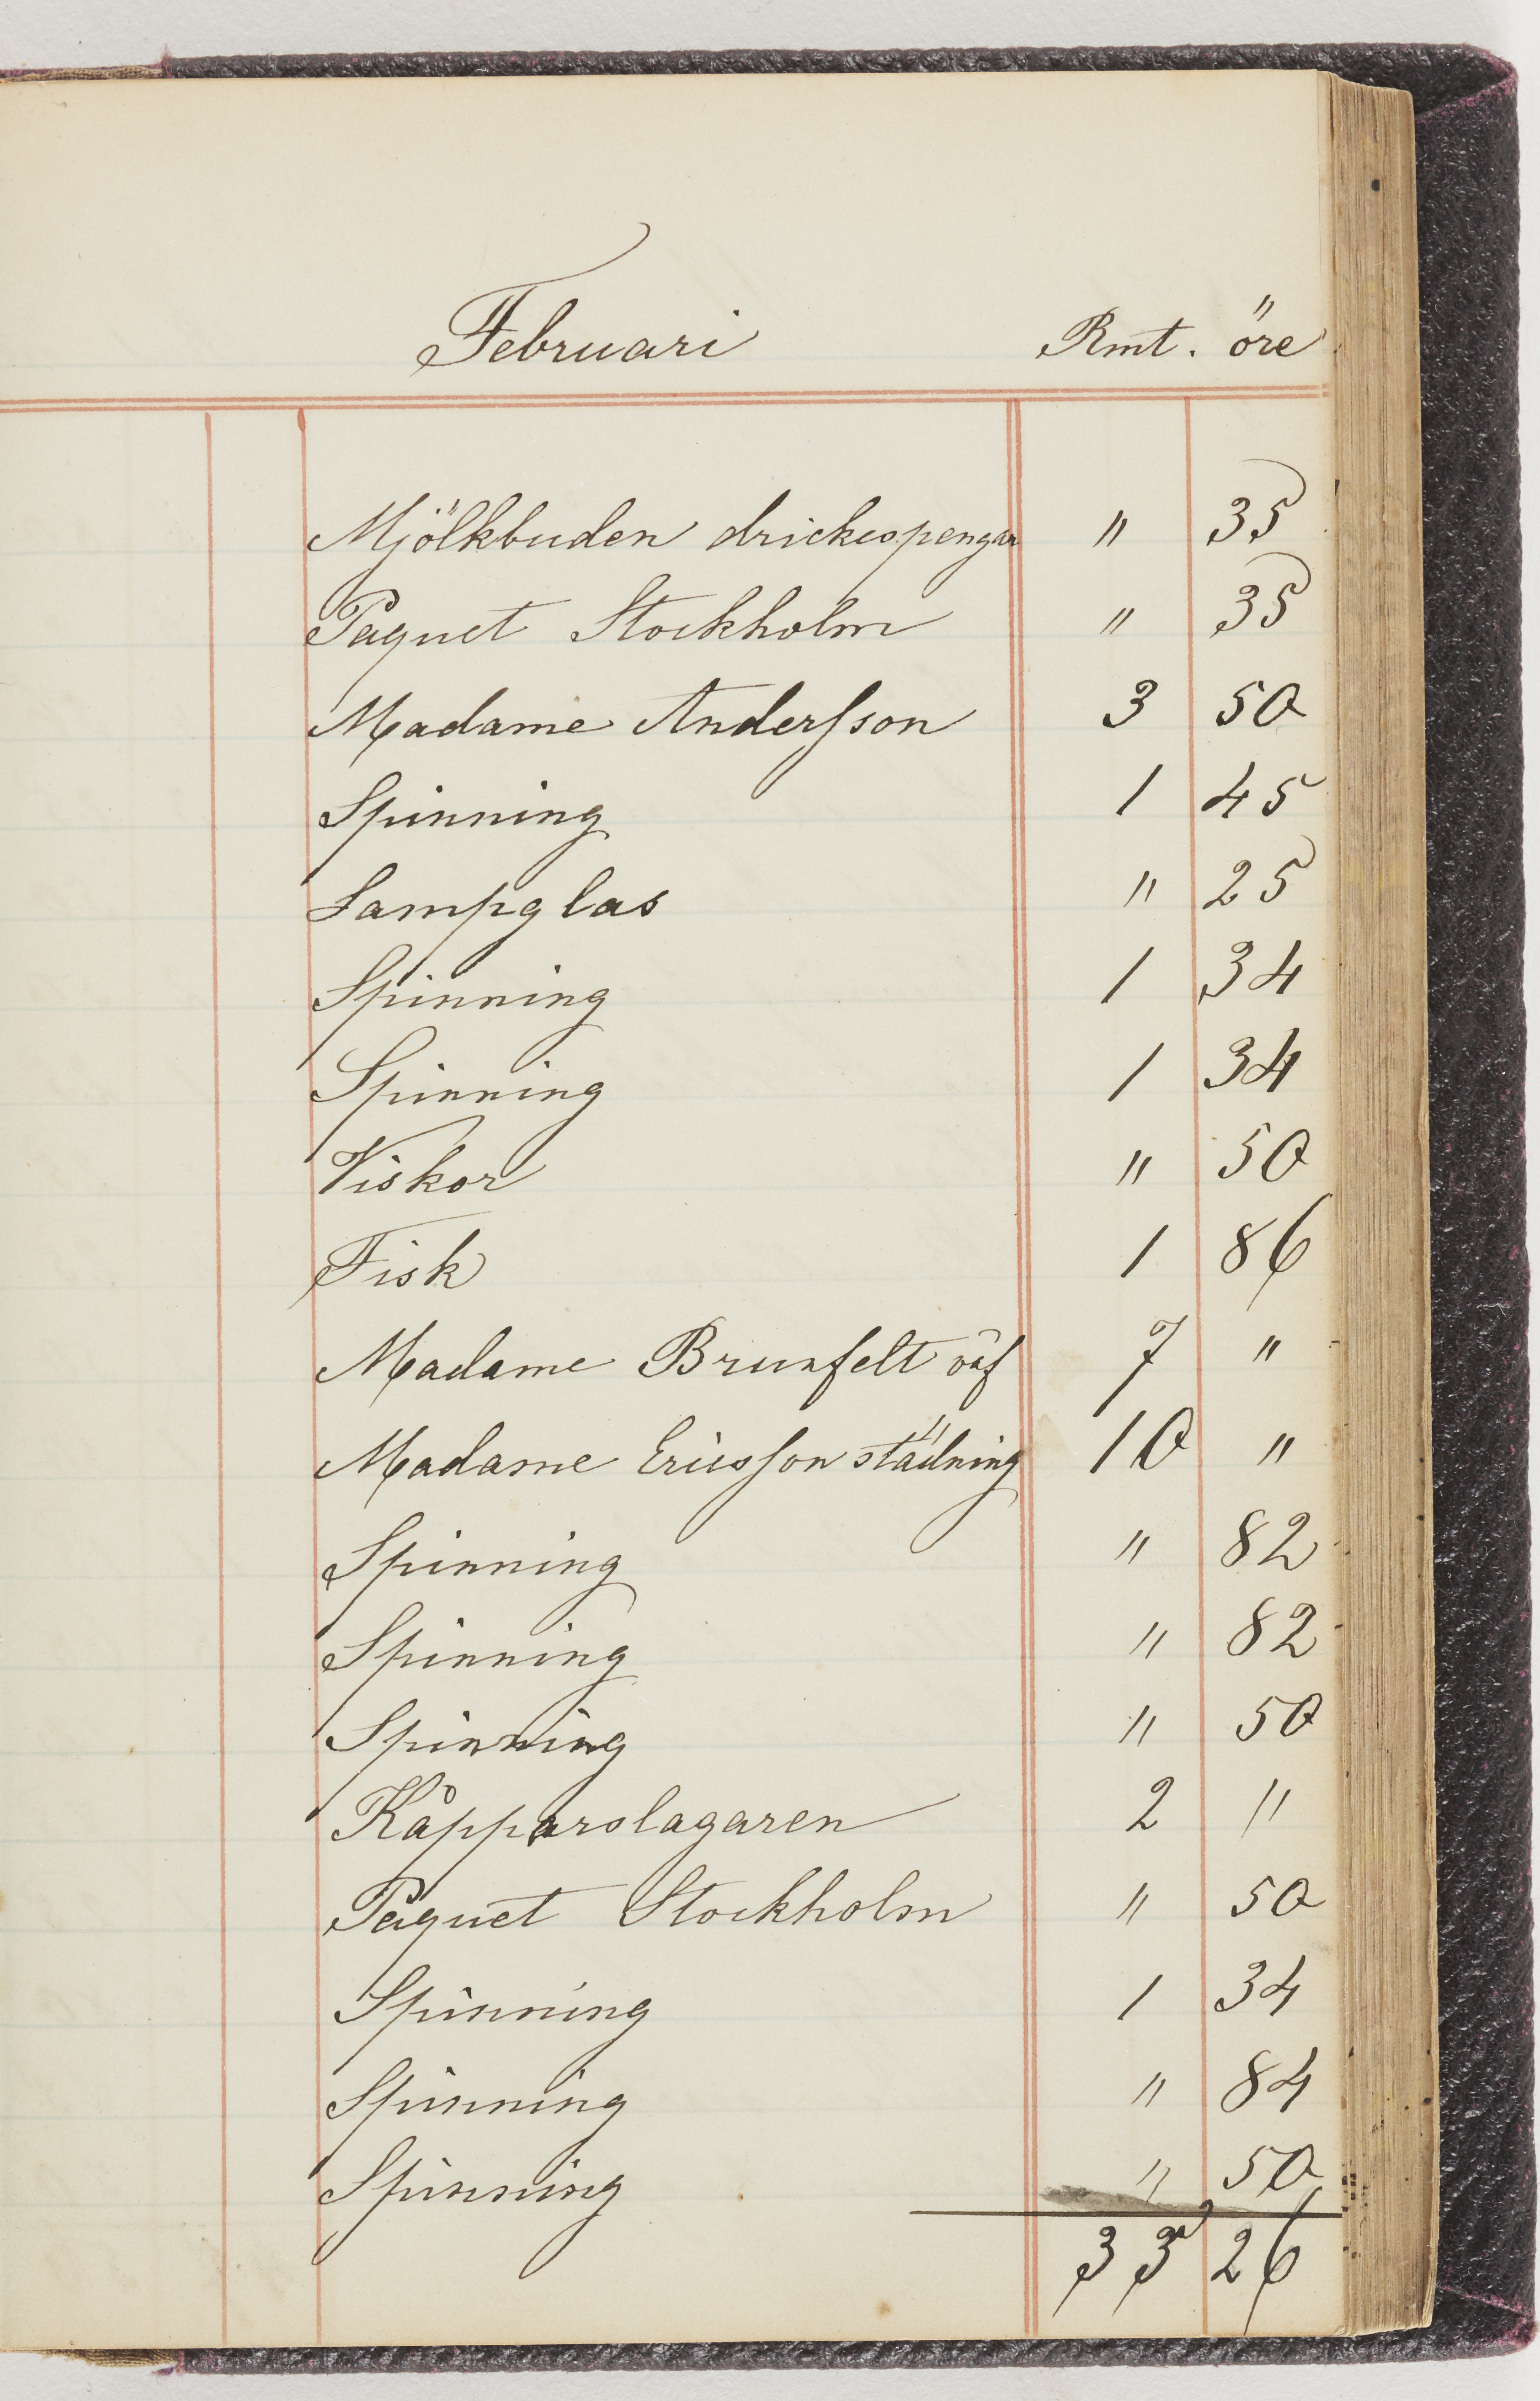 Februari Rmt. öre
Mjölkbuden drickespengar " 35
Paquet Stockholm " 35
Madame Andersson 3 50
Spinning 1 45
Lampglas " 25
Spinning 1 34
Spinning 1 34
Viskor " 50
Fisk 1 86
Madame Brunfelt väf 7 "
Madame Ericsson städning 10 "
Spinning " 82
Spinning " 82
Spinning " 50
Kåpparslagaren 2 "
Paquet Stockholm " 50
Spinning 1 34
Spinning " 84
Spinning " 50
33 26